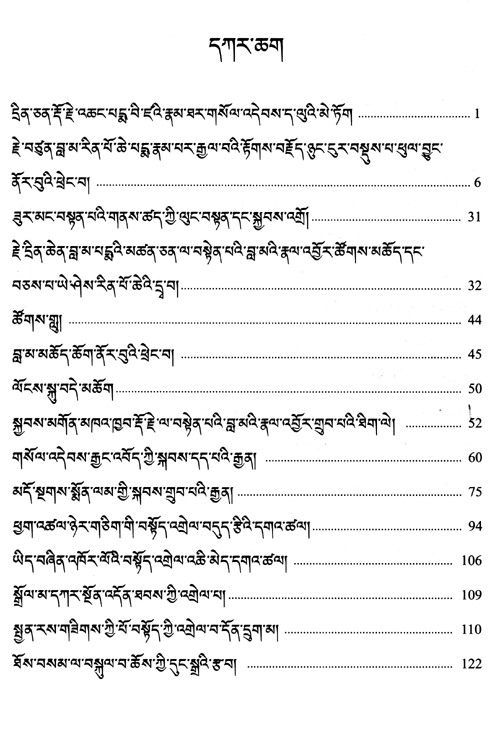 དཀར་ཆག
དྲིན་ཅན་རྡོ་རྗེ་འཆང་པདྨ་བི་ཛའི་རྣམ་ཐར་གསོལ་འདེབས་ད་ལུའི་མེ་ཏོག ........ 1
རྗེ་བཙུན་བླ་མ་རིན་པོ་ཆེ་པདྨ་རྣམ་པར་རྒྱལ་བའི་རྟོགས་བརྗོད་ཉུང་ངུར་བསྡུས་པ་ཕུལ་བྱུང་
ནོར་བུའི་ཕྲེང་བ། ........ 6
ཟུར་མང་བསྟན་པའི་གནས་ཚད་ཀྱི་ལུང་བསྟན་དང་སྐྱབས་འགྲོ། ........ 31
རྗེ་དྲིན་ཆེན་བླ་མ་པདྨའི་མཚན་ཅན་ལ་བསྟེན་པའི་བླ་མའི་རྣལ་འབྱོར་ཚོགས་མཆོད་དང་
བཅས་པ་ཡེ་ཤེས་རིན་པོ་ཆེའི་དྲྭ་བ། ........ 32
ཚོགས་གླུ། ........ 44
བླ་མ་མཆོད་ཆོག་ནོར་བུའི་ཕྲེང་བ། ........ 45
ལོངས་སྐུ་བདེ་མཆོག ........ 50
སྐྱབས་མགོན་མཁའ་ཁྱབ་རྡོ་རྗེ་ལ་བསྟེན་པའི་བླ་མའི་རྣལ་འབྱོར་གྲུབ་པའི་ཐིག་ལེ། ........ 52
གསོལ་འདེབས་རྒྱང་འབོད་ཀྱི་སྐབས་དད་པའི་རྒྱན། ........ 60
མདོ་སྔགས་སྨོན་ལམ་གྱི་སྐབས་གྲུབ་པའི་རྒྱན། ........ 75
ཕྱག་འཚལ་ཉེར་གཅིག་གི་བསྟོད་འགྲེལ་བདུད་རྩིའི་དགའ་ཚལ། ........ 94
ཡིད་བཞིན་འཁོར་ལོའི་བསྟོད་འགྲེལ་འཆི་མེད་དགའ་ཚལ། ........ 106
སྒྲོལ་མ་དཀར་སྔོན་འདོན་ཐབས་ཀྱི་འགྲེལ་པ། ........ 109
སྤྱན་རས་གཟིགས་ཀྱི་པོ་བསྟོད་ཀྱི་འགྲེལ་བ་དོན་དྲུག་མ། ........ 110
ཐོས་བསམ་ལ་བསྐུལ་བ་ཆོས་ཀྱི་དུང་སྒྲའི་རྩ་བ། ........ 122